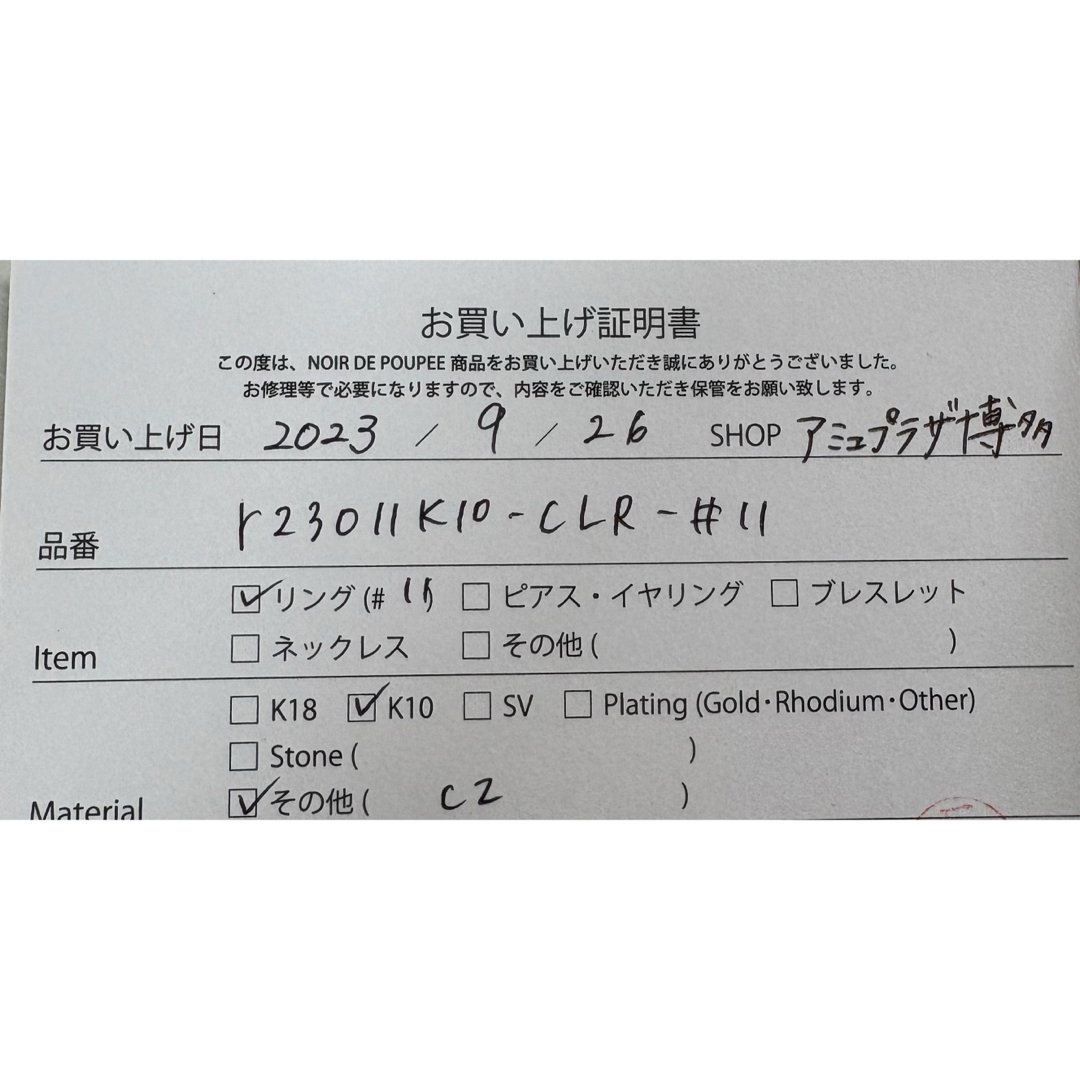 お買い上げ証明書
この度は、NOIR DE POUPEE 商品をお買い上げいただき誠にありがとうございました。
お修理等で必要になりますので、内容をご確認いただき保管をお願い致します。
お買い上げ日 2023 / 9 / 26 SHOP アミュプラザ博多
品番 r23011K10-CLR-#11
☑リング(# 11) □ピアス・イヤリング □ブレスレット
Item □ネックレス □その他( )
□K18 ☑K10 □SV □Plating (Gold・Rhodium・Other)
□Stone ( )
Material ☑その他( CZ )